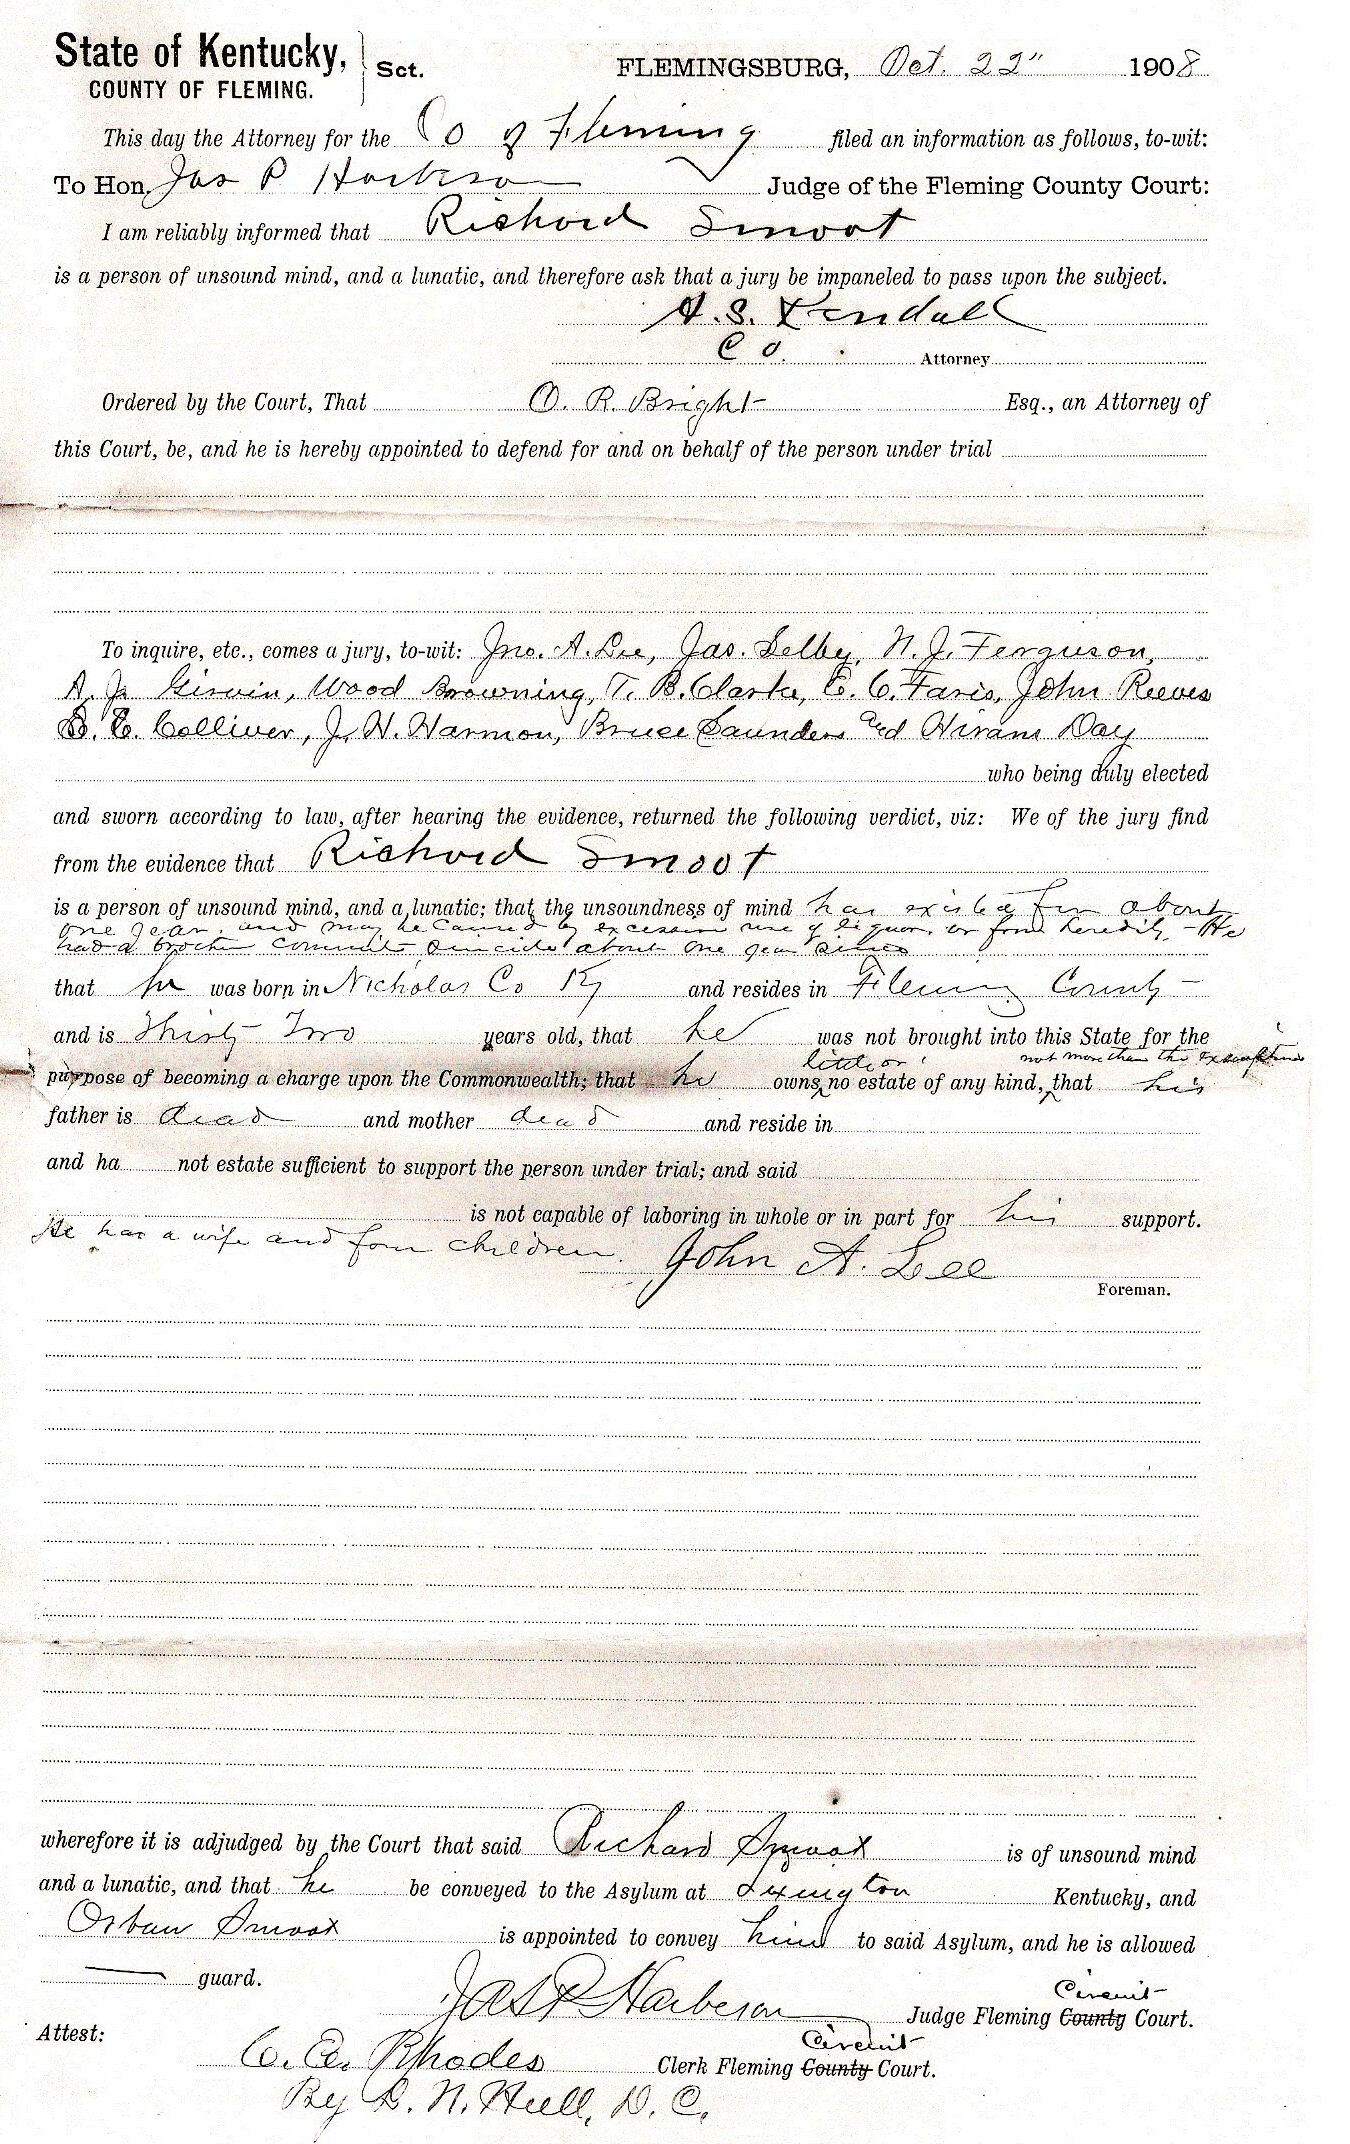 State of Kentucky, } Sct. FLEMINGSBURG, Oct. 22" 1908
COUNTY OF FLEMING.
This day the Attorney for the Co of Fleming filed an information as follows, to-wit:
To Hon. Jas P Harbeson Judge of the Fleming County Court:
I am reliably informed that Richard Smoot
is a person of unsound mind, and a lunatic, and therefore ask that a jury be impaneled to pass upon the subject.
A. S. Kendall
Co. Attorney
Ordered by the Court, That O. R. Bright Esq., an Attorney of
this Court, be, and he is hereby appointed to defend for and on behalf of the person under trial
To inquire, etc., comes a jury, to-wit: Jno. A. Lee, Jas. Selby, N. J. Ferguson,
A. J. Girvin, Wood Browning, T. B. Clarke, E. C. Faris, John Reeves
S. E. Colliver, J. H. Harmon, Bruce Saunders and Hiram Day
who being duly elected
and sworn according to law, after hearing the evidence, returned the following verdict, viz: We of the jury find
from the evidence that Richard Smoot
is a person of unsound mind, and a lunatic; that the unsoundness of mind has existed for about
one year, and may be caused by excessive use of liquor, or from heredity - He
had a brother commit suicide about one year since
that he was born in Nicholas Co Ky and resides in Fleming County
and is Thirty Two years old, that he was not brought into this State for the
little or not more than the exemptions
purpose of becoming a charge upon the Commonwealth; that he owns no estate of any kind, that his
father is dead and mother dead and reside in
and ha not estate sufficient to support the person under trial; and said
is not capable of laboring in whole or in part for his support.
He has a wife and four children. John A. Lee
Foreman.
wherefore it is adjudged by the Court that said Richard Smoot is of unsound mind
and a lunatic, and that he be conveyed to the Asylum at Lexington Kentucky, and
Orban Smoot is appointed to convey him to said Asylum, and he is allowed
— guard.
Jas P Harbeson Judge Fleming County Circuit Court.
Attest:
C. A. Rhodes Clerk Fleming County Circuit Court.
By D. N. Hull, D. C.